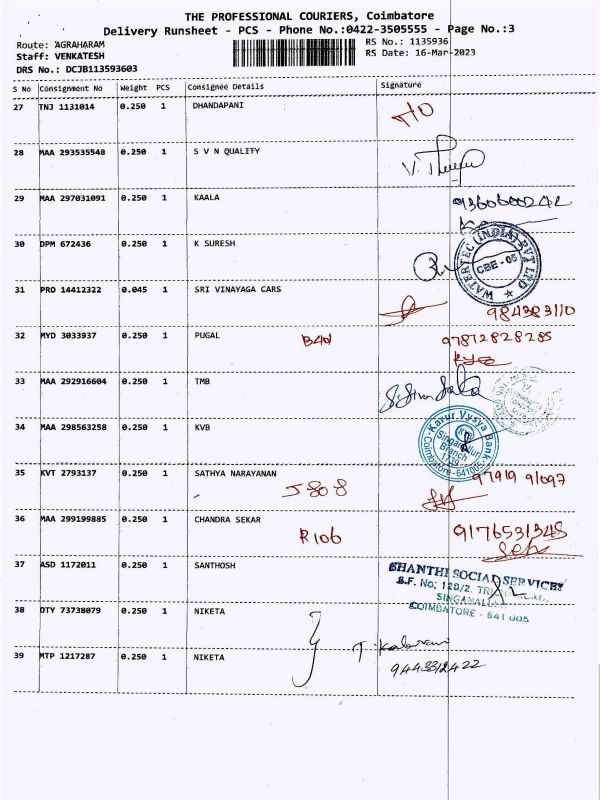 THE PROFESSIONAL COURIERS, Coimbatore
Delivery Runsheet - PCS - Phone No.:0422-3505555 - Page No.:3
Route: AGRAHARAM RS No.: 1135936
Staff: VENKATESH RS Date: 16-Mar-2023
DRS No.: DCJB113593603
S No Consignment No Weight PCS Consignee Details Signature
27 TNJ 1131014 0.250 1 DHANDAPANI
28 MAA 293535548 0.250 1 S V N QUALITY
29 MAA 297031091 0.250 1 KAALA
30 DPM 672436 0.250 1 K SURESH
WATERTEC (INDIA) PVT LTD
CBE - 05
31 PRO 14412322 0.045 1 SRI VINAYAGA CARS
984383110
32 MYD 3033937 0.250 1 PUGAL
97872828285
33 MAA 292916604 0.250 1 TMB
34 MAA 298563258 0.250 1 KVB
Karur Vysya Bank
Singanallur
Branch
Coimbatore-641005
35 KVT 2793137 0.250 1 SATHYA NARAYANAN J808 97919 91097
36 MAA 299199885 0.250 1 CHANDRA SEKAR
R106 9176531348
37 ASD 1172011 0.250 1 SANTHOSH
SHANTHI SOCIAL SERVICES
S.F. No: 128/2,
SINGANALLUR
COIMBATORE - 641 005
38 DTY 73738079 0.250 1 NIKETA
39 MTP 1217287 0.250 1 NIKETA
9443312422